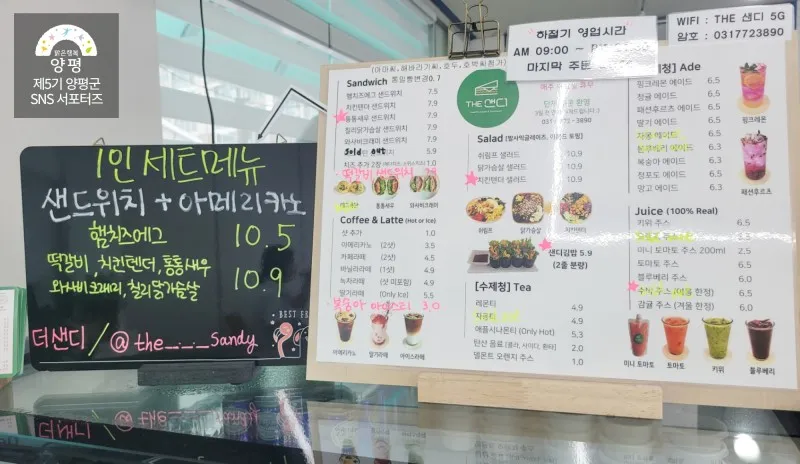 맑은행복
양평
제5기 양평군
SNS 서포터즈
1인 세트메뉴
샌드위치 + 아메리카노
햄치즈에그 10.5
떡갈비, 치킨텐더, 통통새우
와사비크래미, 칠리닭가슴살 10.9
더샌디 / @the_._._Sandy
BEST
하절기 영업시간
AM 09:00 ~
마지막 주문
WIFI : THE 샌디 5G
암호 : 0317723890
Sandwich 통밀빵변경 0.7
햄치즈에그 샌드위치 7.5
치킨텐더 샌드위치 7.9
통통새우 샌드위치 7.9
칠리닭가슴살 샌드위치 7.9
Sold out
치즈 추가 2장 1.0
떡갈비 샌드위치
통통새우
와사비크래미
Coffee & Latte (Hot or Ice)
샷 추가 1.0
아메리카노 (2샷) 3.5
카페라떼 (2샷) 4.5
바닐라라떼 (1샷) 4.9
녹차라떼 (샷 미포함) 4.9
딸기라떼 (Only Ice) 5.5
복숭아 아이스티 3.0
아메리카노
딸기라떼
아이스라떼
THE 샌디
Salad
쉬림프 샐러드 10.9
닭가슴살 샐러드 10.9
치킨텐더 샐러드 10.9
쉬림프
닭가슴살
치킨텐더
샌디김밥 5.9
(2줄 분량)
[수제청] Tea
레몬티 4.9
자몽티 4.9
애플시나몬티 (Only Hot) 5.3
탄산 음료 (콜라, 사이다, 환타) 2.0
델몬트 오렌지 주스 1.0
Ade
핑크레몬 에이드 6.5
청귤 에이드 6.5
패션후르츠 에이드 6.5
딸기 에이드 6.5
자몽 에이드 6.5
블루베리 에이드 6.5
복숭아 에이드 6.5
청포도 에이드 6.5
망고 에이드 6.5
핑크레몬
패션후르츠
Juice (100% Real)
키위 주스 6.5
미니 토마토 주스 200ml 2.5
토마토 주스 6.5
블루베리 주스 6.0
수박 주스 (여름 한정) 6.5
감귤 주스 (겨울 한정) 6.5
미니 토마토
토마토
키위
블루베리